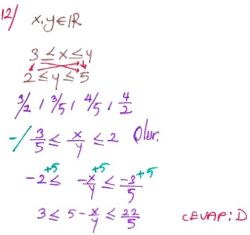 12/ x,y∈ℝ
3 ≤ x ≤ 4
2 ≤ y ≤ 5
3/2 , 3/5 , 4/5 , 4/2
-/ 3/5 ≤ x/y ≤ 2 Olur.
-2 +5 ≤ -x/y +5 ≤ -3/5 +5
3 ≤ 5 - x/y ≤ 22/5 CEVAP: D